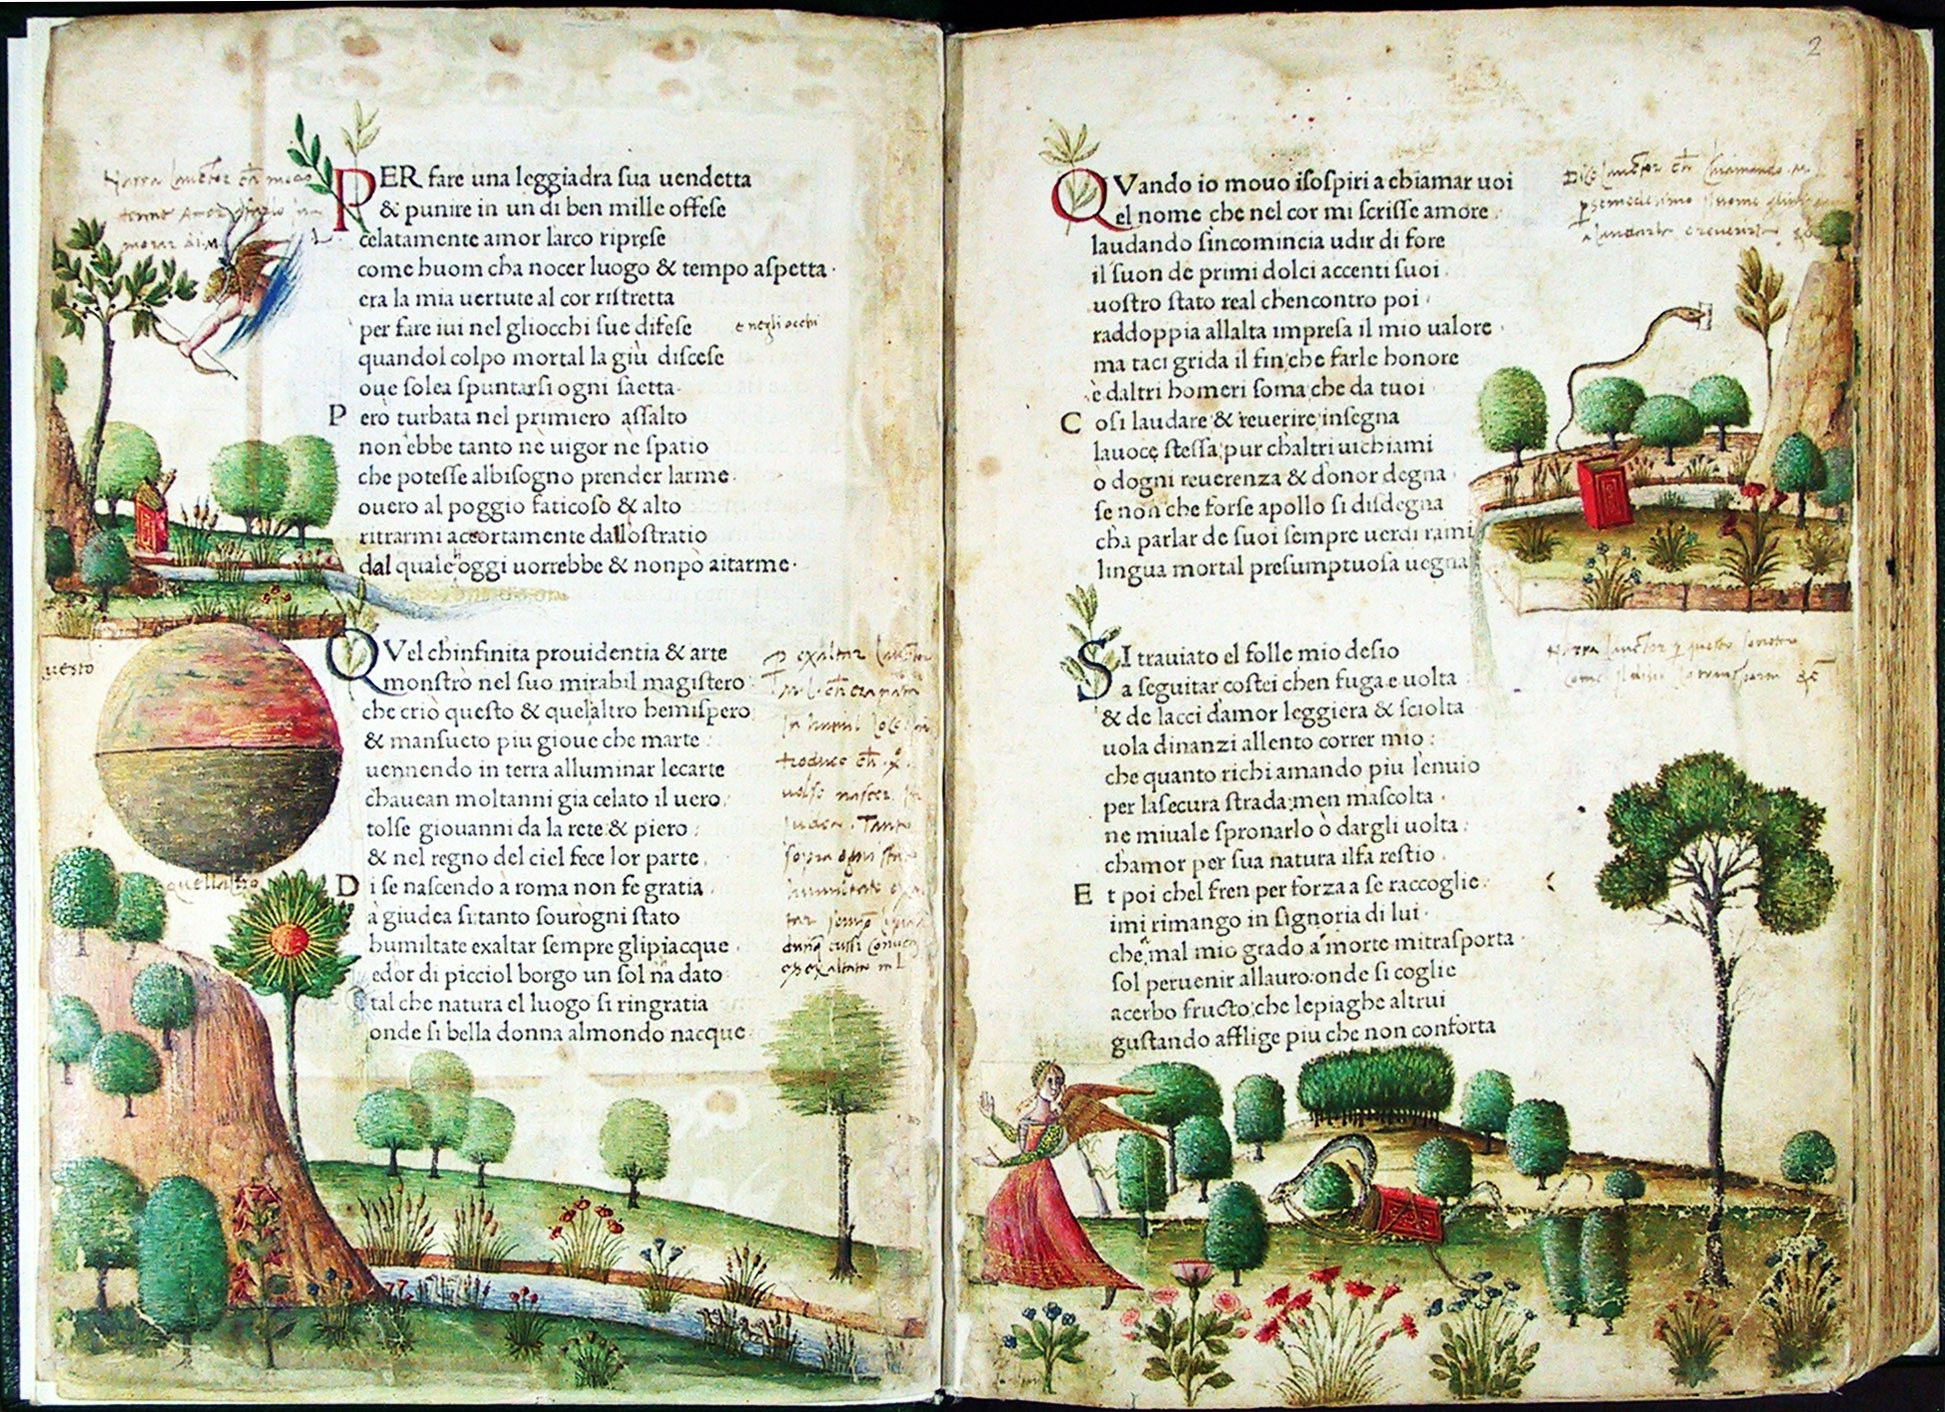 PER fare una leggiadra sua uendetta
& punire in un di ben mille offese
celatamente amor larco riprese
come huom cha nocer luogo & tempo aspetta·
era la mia uertute al cor ristretta
per fare iui nel gliocchi sue difese
e negli occhi
quandol colpo mortal la giù discese
oue solea spuntarsi ogni saetta·
Pero turbata nel primiero assalto
non ebbe tanto ne uigor ne spatio
che potesse albisogno prender larme·
ouero al poggio faticoso & alto
ritrarmi accortamente dallostratio
dal quale oggi uorrebbe & nonpò aitarme·
QVel chinfinita prouidentia & arte
monstrò nel suo mirabil magistero
che criò questo & quelaltro hemispero
& mansueto piu gioue che marte:
uennendo in terra alluminar lecarte
chauean moltanni gia celato il uero
tolse giouanni da la rete & piero:
& nel regno del ciel fece lor parte.
Di se nascendo à roma non fe gratia
à giudea si:tanto sourogni stato
humiltate exaltar sempre glipiacque·
edor di picciol borgo un sol na dato
tal che natura el luogo si ringratia
onde si bella donna almondo nacque·
2
QVando io mouo isospiri a chiamar uoi
el nome che nel cor mi scrisse amore
laudando sincomincia udir di fore
il suon de primi dolci accenti suoi
uostro stato real chencontro poi
raddoppia allalta impresa il mio ualore
ma taci grida il fin;che farle honore
è daltri homeri soma che da tuoi
Cosi laudare & reuerire insegna
lauoce stessa;pur chaltri uichiami
ò dogni reuerenza & donor degna
se non che forse apollo si disdegna
chà parlar de suoi sempre uerdi rami
lingua mortal presumptuosa uegna
SI trauiato el folle mio desio
a seguitar costei chen fuga e uolta
& de lacci damor leggiera & sciolta
uola dinanzi allento correr mio:
che quanto richiamando piu lenuio
per lasecura strada:men mascolta
ne miuale spronarlo ò dargli uolta:
chamor per sua natura ilfa restio
Et poi chel fren per forza a se raccoglie
imi rimango in signoria di lui
che mal mio grado a morte mitrasporta
sol peruenir allauro:onde si coglie
acerbo fructo:che lepiaghe altrui
gustando afflige piu che non conforta